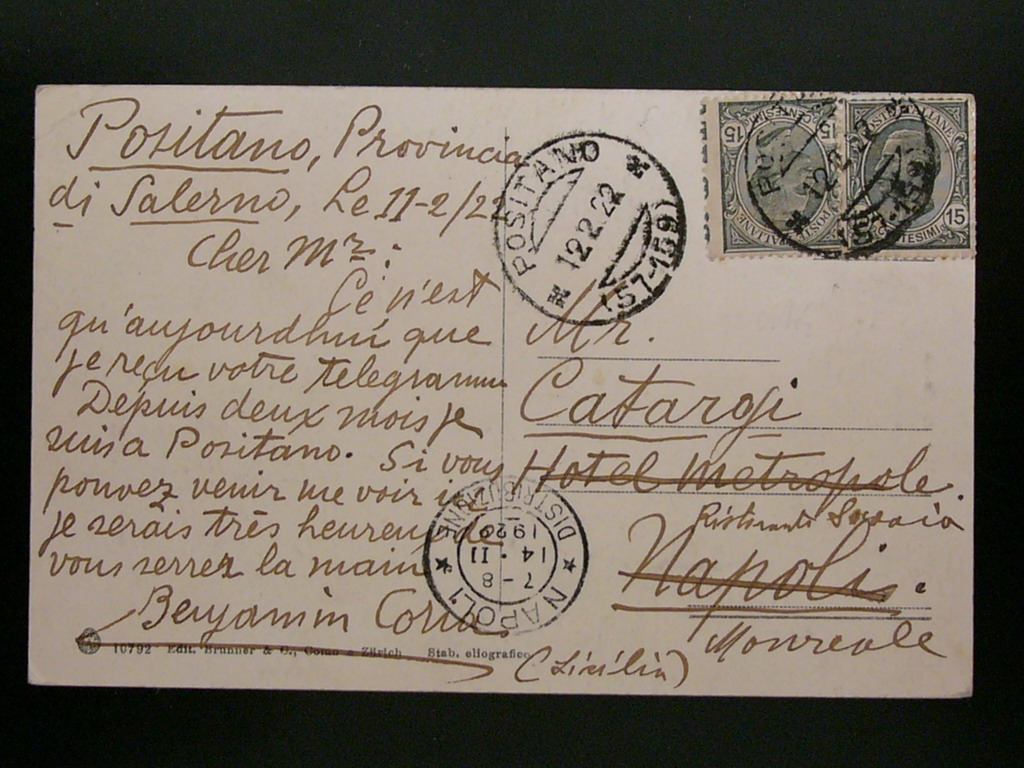 Positano, Provincia
di Salerno, Le 11-2/22
Cher Mr:
Ce n'est
qu'aujourdhui que
je reçu votre telegramme
Depuis deux mois je
suis a Positano. Si vous
pouvez venir me voir ici
je serais très heureux de
vous serrez la main
Benyamin
10792 Edit. Brunner & C., Como e Zürich Stab. eliografico
POSITANO
12.2.22
(57-159)
POSTE ITALIANE
CENTESIMI
15
15
POSTE ITALIANE
CENTESIMI
15
POS
12.2.22
(57-159)
Mr.
Catargi
Hotel Metropole.
Ristorante
Napoli.
Monreale
(Sicilia)
NAPOLI
7-8
14 · II
192
DISTRIBUZIONE